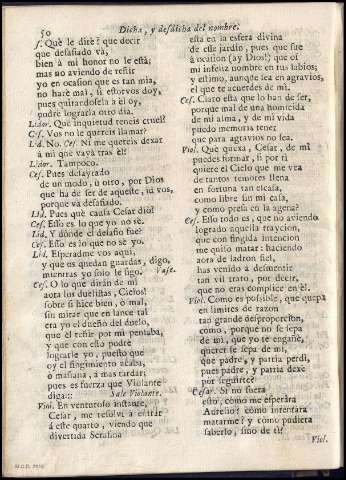 50
Dicha, y desdicha del nombre.
s. Què le dire? que decir
que desafiado và,
bien à mi honor no le està;
mas no aviendo de reñir
yo en ocasion que es tan mia,
no harè mal, si estorvos doy,
pues quitandosela à èl oy,
podrè lograrla otro dia.
Lidor. Què inquietud teneis cruel?
Ces. Vos no le quereis llamar?
Lid. No. Ces. Ni me quereis dexar
à mi que vaya tras èl?
Lidor. Tampoco.
Ces. Pues declaryado
de un modo, ù otro, por Dios
que ha de ser de aqueste, id vos,
porque và desafiado.
Lid. Pues què causa Cesar diò?
Ces. Esso es lo que yo no sè.
Lid. Y dònde el desafio fue?
Ces. Esso es lo que no sè yo.
Lid. Esperadme vos aqui,
y que os quedan guardas, digo,
mientras yo solo le sigo. Vase.
Ces. O lo que diràn de mi
aora los duelistas, Cielos!
sobre si hice bien, ò mal,
sin mirar que en lance tal
era yo el dueño del duelo,
que èl reñir por mi pensaba,
y que con esto podrè
lograrle yo, puesto que
oy el fingimiento acaba,
ò mañana, à mas tardar;
pues es fuerza que Violante
diga::: Sale Violante.
Viol. En venturoso instante,
Cesar, me resolvì à entrar
à este quarto, viendo que
divertida Serafina
està en la esfera divina
de esse jardin, pues que fue
à ocasion (ay Dios!) que oì
mi infeliz nombre en tus labios;
y estimo, aunque sea en agravios,
el que te acuerdes de mi.
Ces. Claro està que lo han de ser,
porque mal de una homicida
de mi alma, y de mi vida
puedo memoria tener
que para agravios no sea.
Viol. Què quexa, Cesar, de mì
puedes formar, si por ti
quiere el Cielo que me vea
de tantos temores llena
en fortuna tan escasa,
como libre sin mi casa,
y como presa en la agena?
Ces. Esso todo es, que no aviendo
logrado aquella traycion,
que con fingida intencion
me quiso matar: haciendo
aora de ladron fiel,
has venido à desmentir
tan vil trato, por decir,
que no eras complice en èl.
Viol. Como es possible, que quepa
en limites de razon
tan grande desproporcion,
como, porque no se sepa
de mi, que yo te engañè,
querer se sepa de mi,
que padre, y patria perdì,
pues padre, y patria dexè
por seguirte?
Cesar. Si no fuera
esto, còmo me esperàra
Aurelio? còmo intentàra
matarme? y còmo pudiera
saberlo, sino de ti?
Viol.